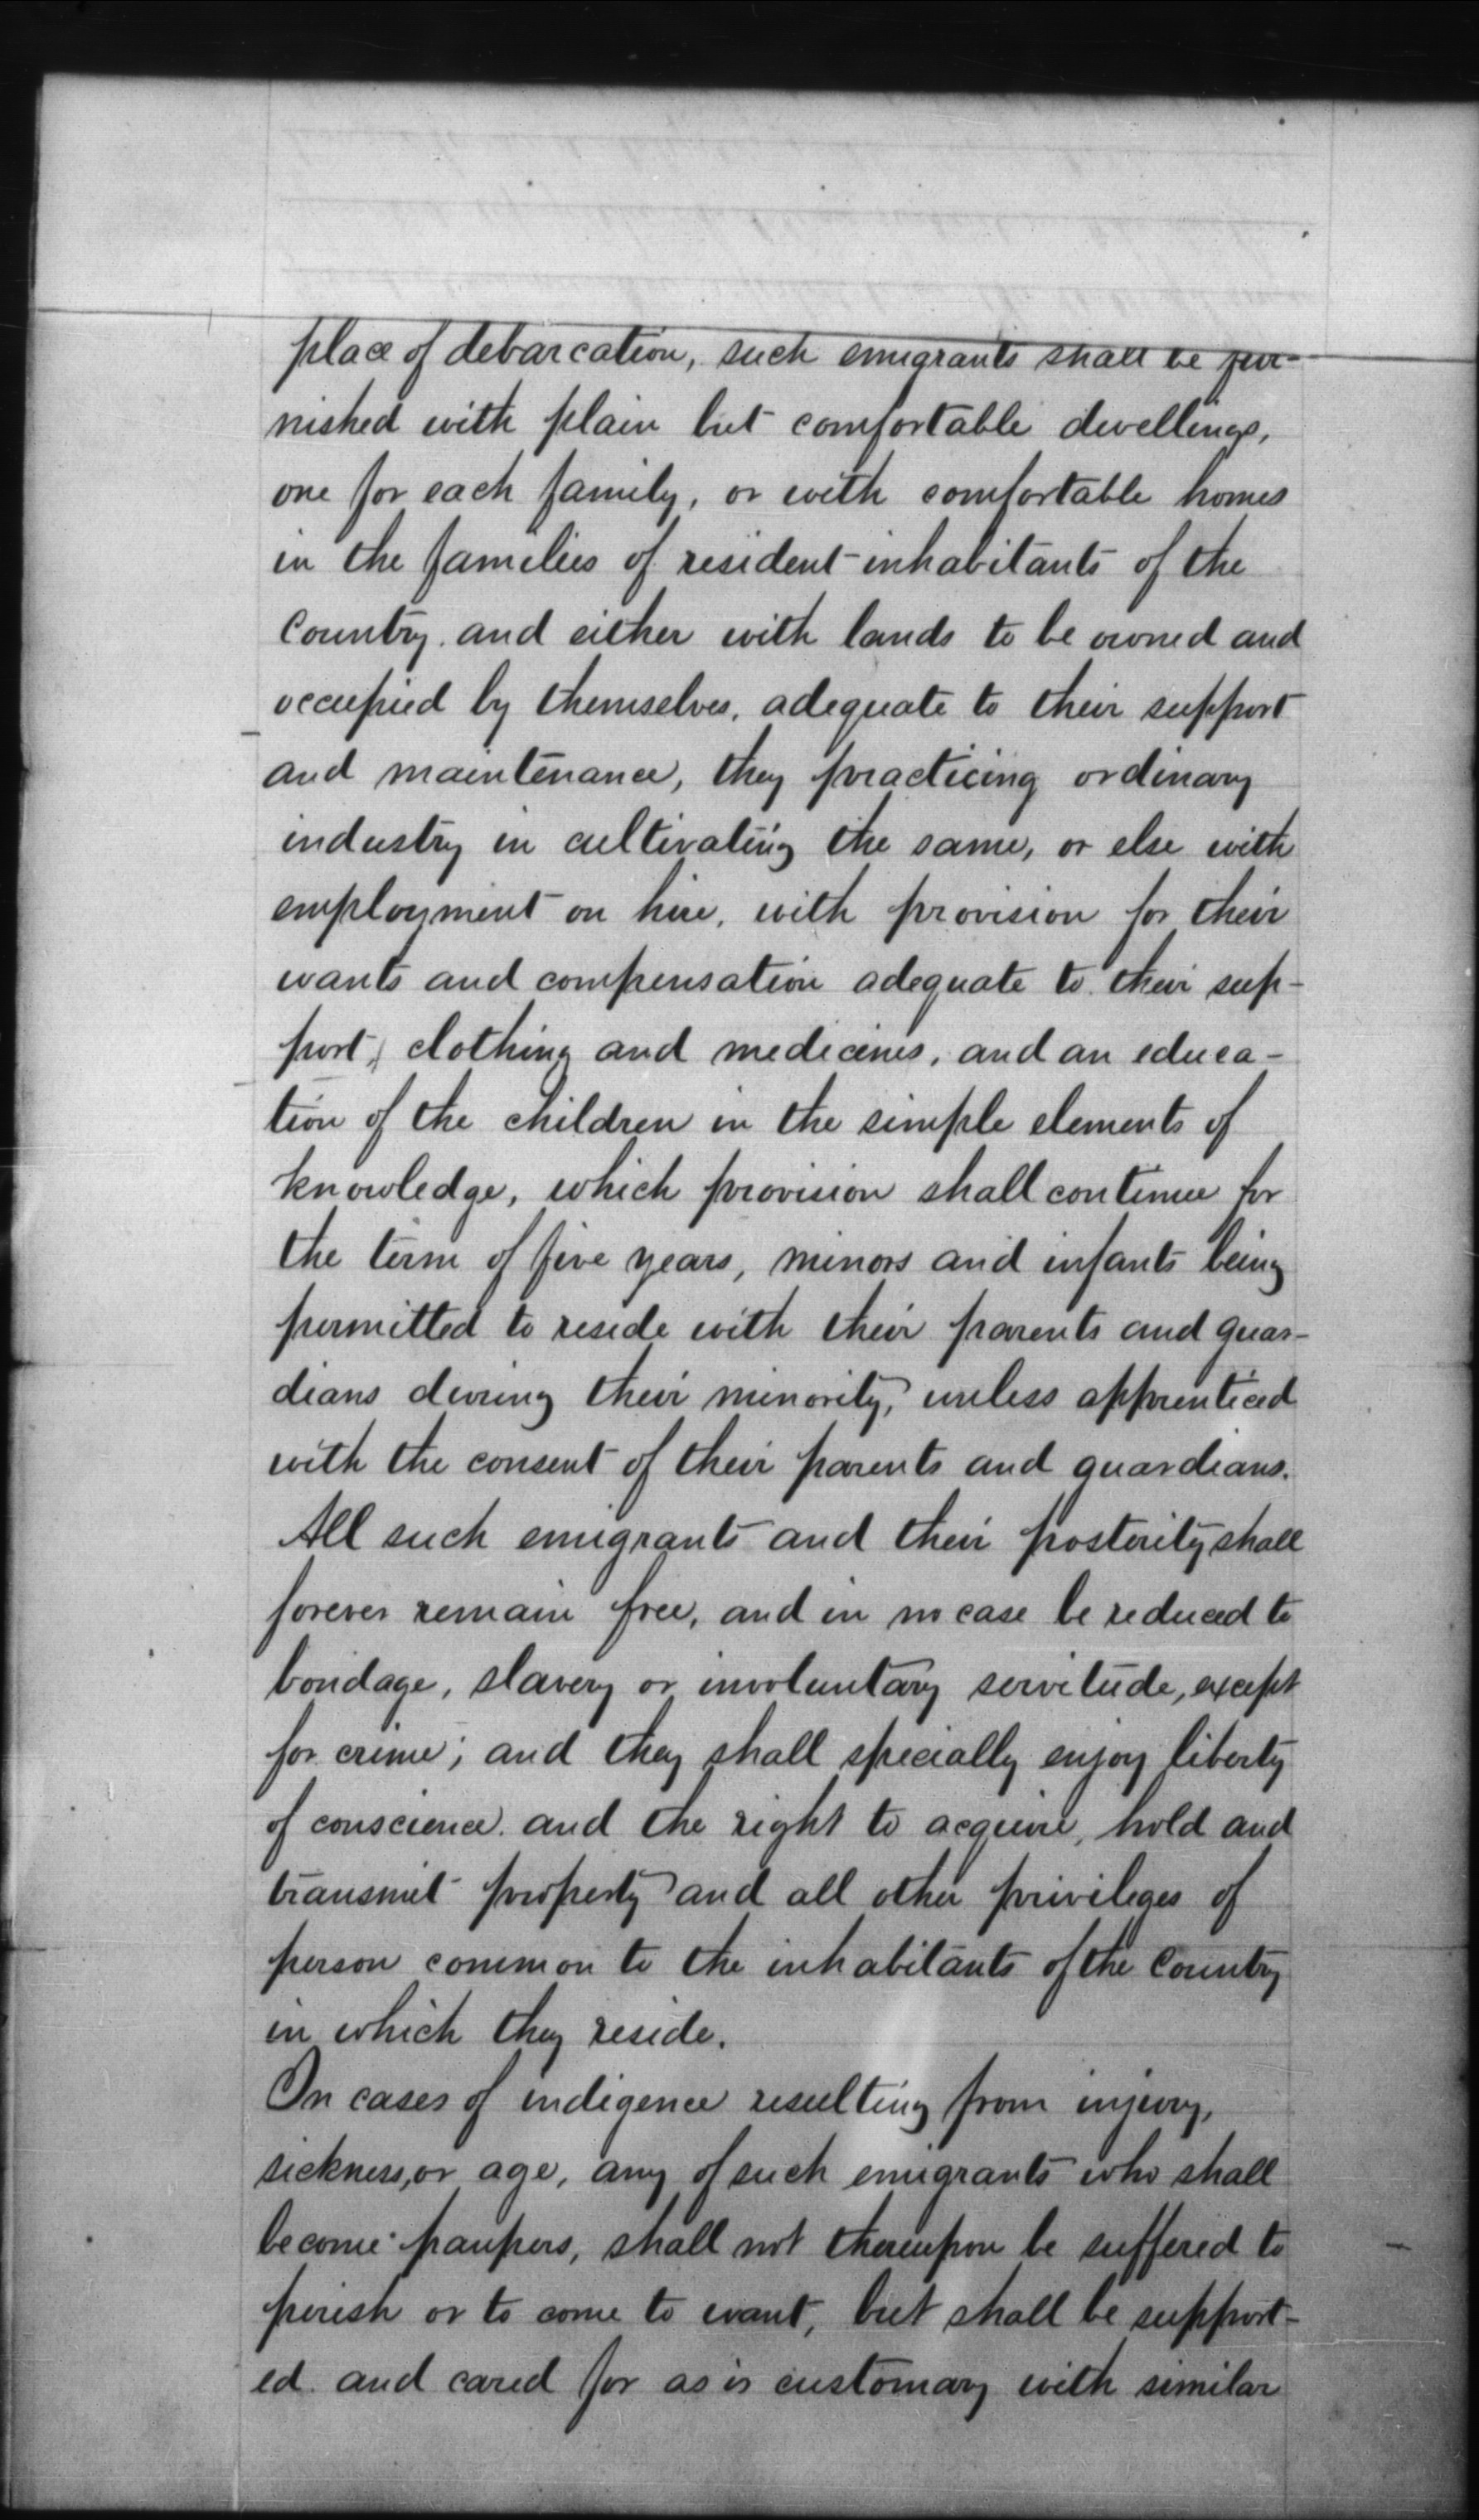 place of debarcation, such emigrants shall be fur-
nished with plain but comfortable dwellings,
one for each family, or with comfortable homes
in the families of resident inhabitants of the
Country, and either with lands to be owned and
occupied by themselves, adequate to their support
and maintenance, they practicing ordinary
industry in cultivating the same, or else with
employment on hire, with provision for their
wants and compensation adequate to their sup-
port, clothing and medicines, and an educa-
tion of the children in the simple elements of
knowledge, which provision shall continue for
the term of five years, minors and infants being
permitted to reside with their parents and guar-
dians during their minority, unless apprenticed
with the consent of their parents and guardians.
All such emigrants and their posterity shall
forever remain free, and in no case be reduced to
bondage, slavery or involuntary servitude, except
for crime; and they shall specially enjoy liberty
of conscience and the right to acquire, hold and
transmit property and all other privileges of
person common to the inhabitants of the Country
in which they reside.
In cases of indigence resulting from injury,
sickness, or age, any of such emigrants who shall
become paupers, shall not thereupon be suffered to
perish or to come to want, but shall be support-
ed and cared for as is customary with similar